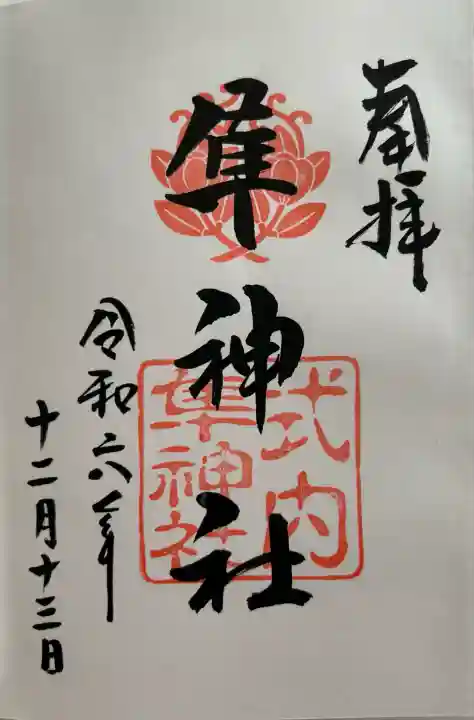 奉拝
隼神社
式内
隼神社
令和六年
十二月十三日